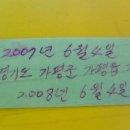 2009년 6월 4일
경기도 가평군 가평읍
2008년 6월 4일